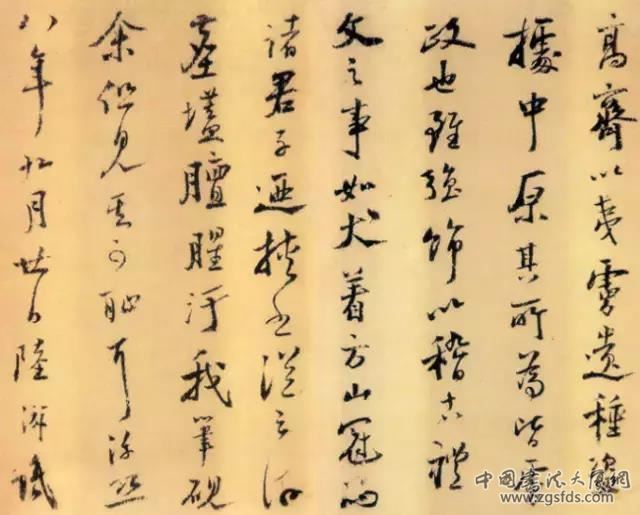 高齊以夷虜遺種盜
據中原其所為皆虜
政也雖強飾以稽古禮
文之事如犬着方山冠而
諸君子迺挾書從之游
塵壒膻腥汙我筆硯
余但見其可恥耳淳熙
八年九月廿日陸游識
中国书法大厦网
www.zgsfds.com